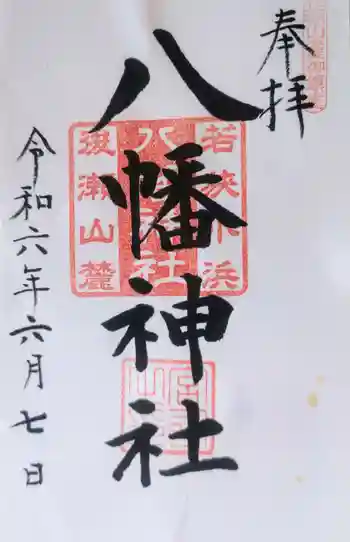 奉拝
八幡神社
若狭小浜
八幡神社
後瀬山麓
令和六年六月七日